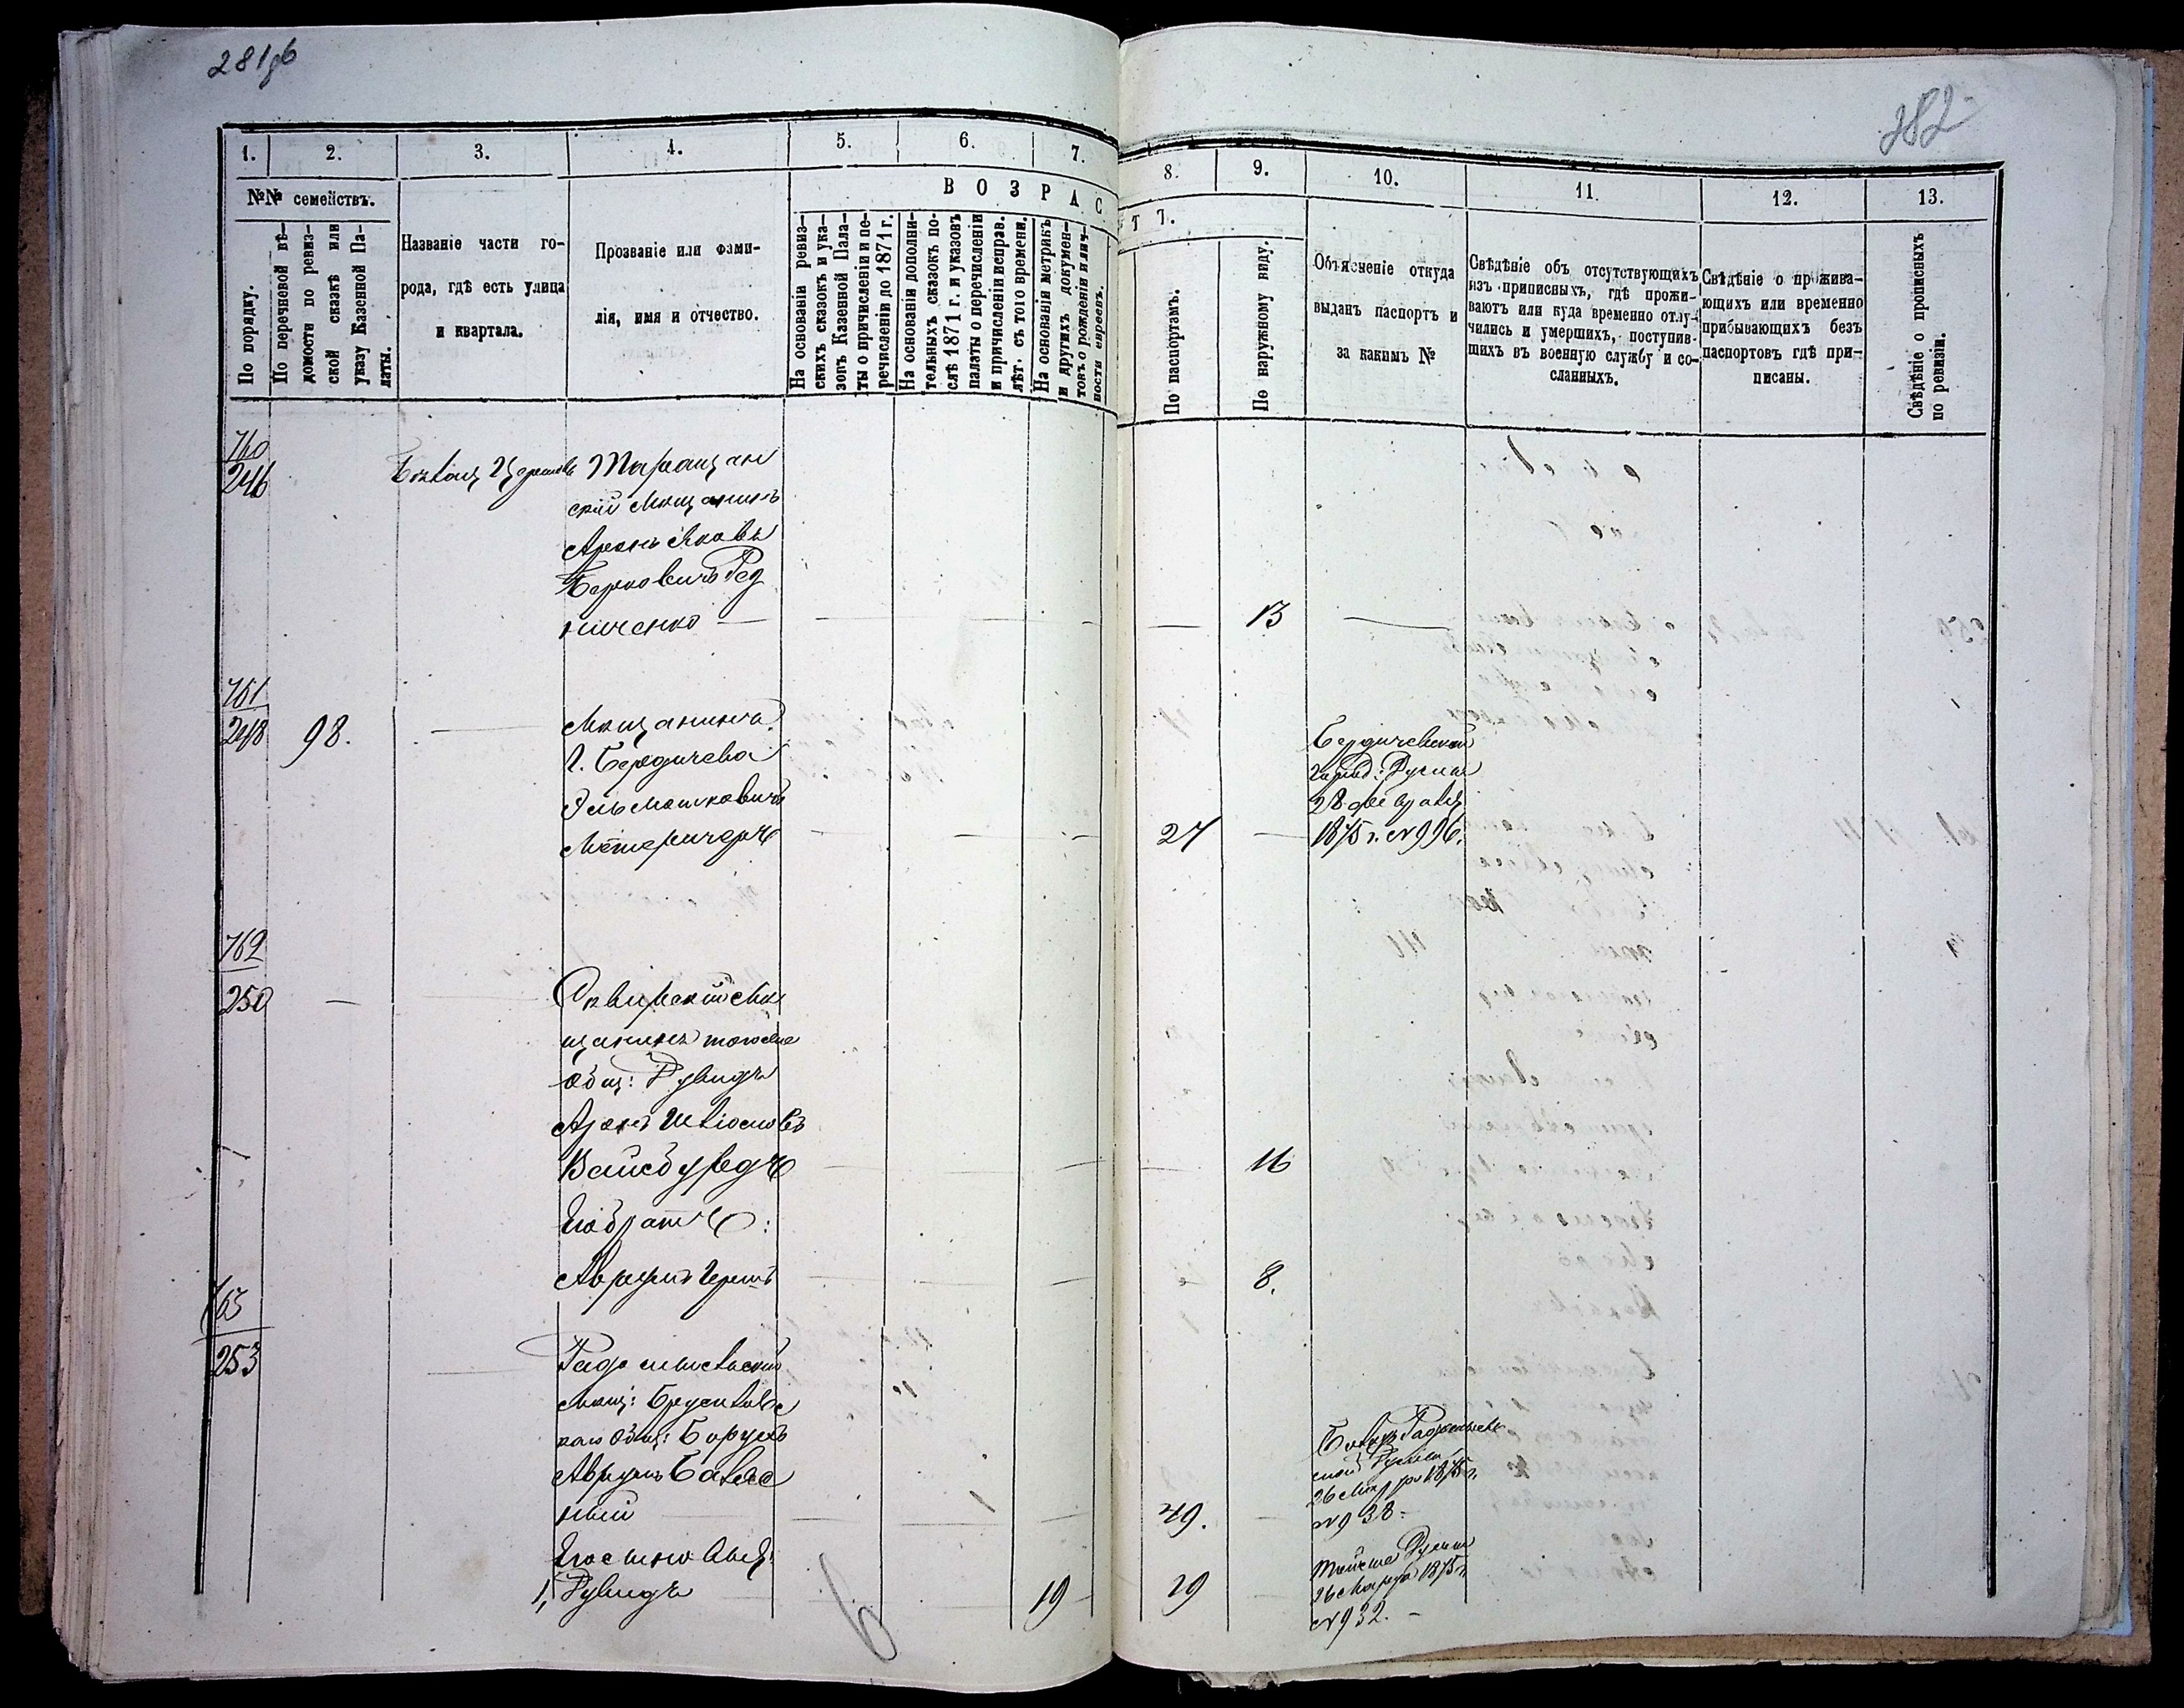 281об
282
1. 2. 3. 4. 5. 6. 7.
8. 9. 10. 11. 12. 13.
№№ семействъ.
По порядку.
По перечневой вѣ-
домости по ревиз-
ской сказкѣ или
указу Казенной Па-
латы.
Названіе части го-
рода, гдѣ есть улица
и квартала.
Прозваніе или фами-
лія, имя и отчество.
ВОЗРАС
ТЪ.
На основаніи ревиз-
скихъ сказокъ и ука-
зовъ Казенной Пала-
ты о причисленіи и пе-
речисленіи до 1871 г.
На основаніи дополни-
тельныхъ сказокъ по-
слѣ 1871 г. и указовъ
палаты о перечисленіи
и причисленіи исправ.
лѣт. съ того времени.
На основаніи метрикъ
и другихъ докумен-
товъ о рожденіи и лич-
ности евреевъ.
По паспортамъ.
По наружному виду.
Объясненіе откуда
выданъ паспортъ и
за какимъ №
Свѣдѣніе объ отсутствующихъ
изъ приписныхъ, гдѣ прожи-
ваютъ или куда временно отлу-
чились и умершихъ, поступив-
шихъ въ военную службу и со-
сланныхъ.
Свѣдѣніе о прожива-
ющихъ или временно
прибывающихъ безъ
паспортовъ гдѣ при-
писаны.
Свѣдѣніе о прописныхъ
по ревизіи.
760
246
Таращан
скій Мѣщанинъ
Аронъ Яковъ
Берковичъ Ред
ниченко — 13
761
248 98. Мѣщанинъ
г. Бердичева
Эль Мошковичъ
27
Бердичевской
28 февраля
1875 г. № 996.
762
250 Сквирскій Мѣ
щанинъ тоюже
Общ: Рувидъ
Аронъ
Вайсбурдъ 16
Его братъ:
Аврумъ Гершъ 8.
763
253 Радомысльскій
Мѣщ: Брусилов
каго Общ: Борухъ
Аврумъ
ный 49.
26 1875 г.
№ 938.
Его сынъ
1, Рувидъ 19 29
26 Марта 1875 г.
№ 932. -